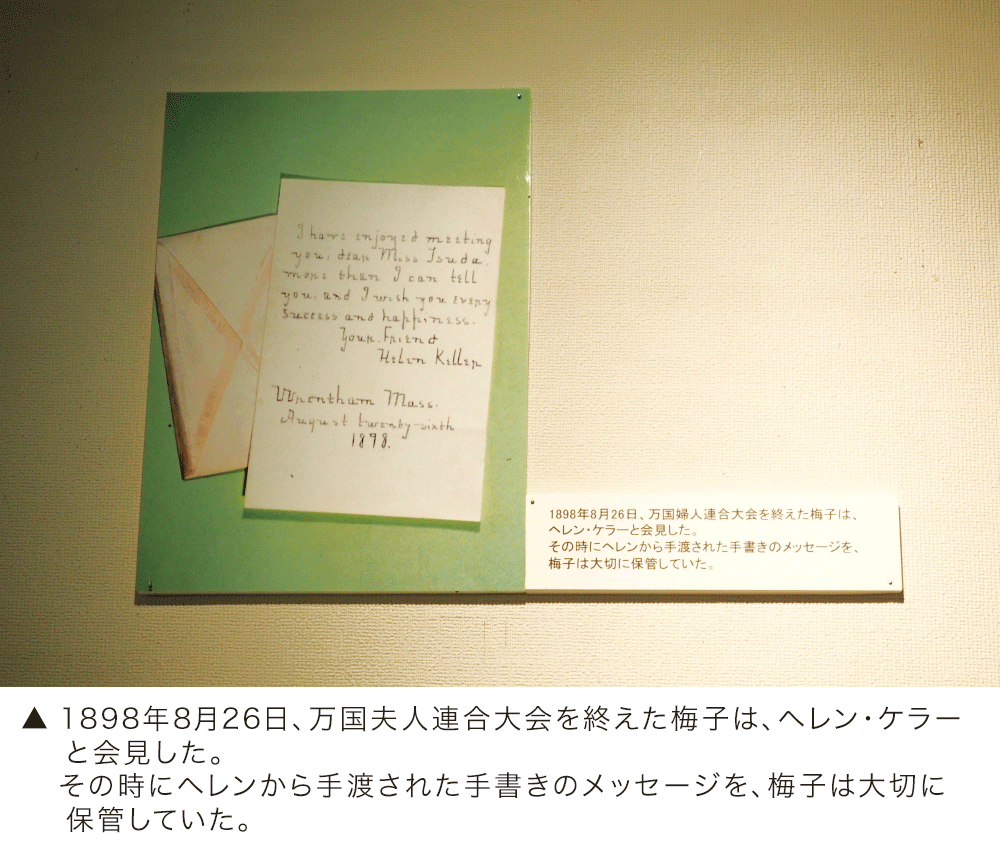 I have enjoyed meeting
you, dear Miss Tsuda,
more than I can tell
you, and I wish you every
success and happiness.
Your Friend,
Helen Keller
Wrentham Mass.
August twenty-sixth
1898.
1898年8月26日、万国婦人連合大会を終えた梅子は、
ヘレン・ケラーと会見した。
その時にヘレンから手渡された手書きのメッセージを、
梅子は大切に保管していた。
▲ 1898年8月26日、万国夫人連合大会を終えた梅子は、ヘレン・ケラー
と会見した。
その時にヘレンから手渡された手書きのメッセージを、梅子は大切に
保管していた。